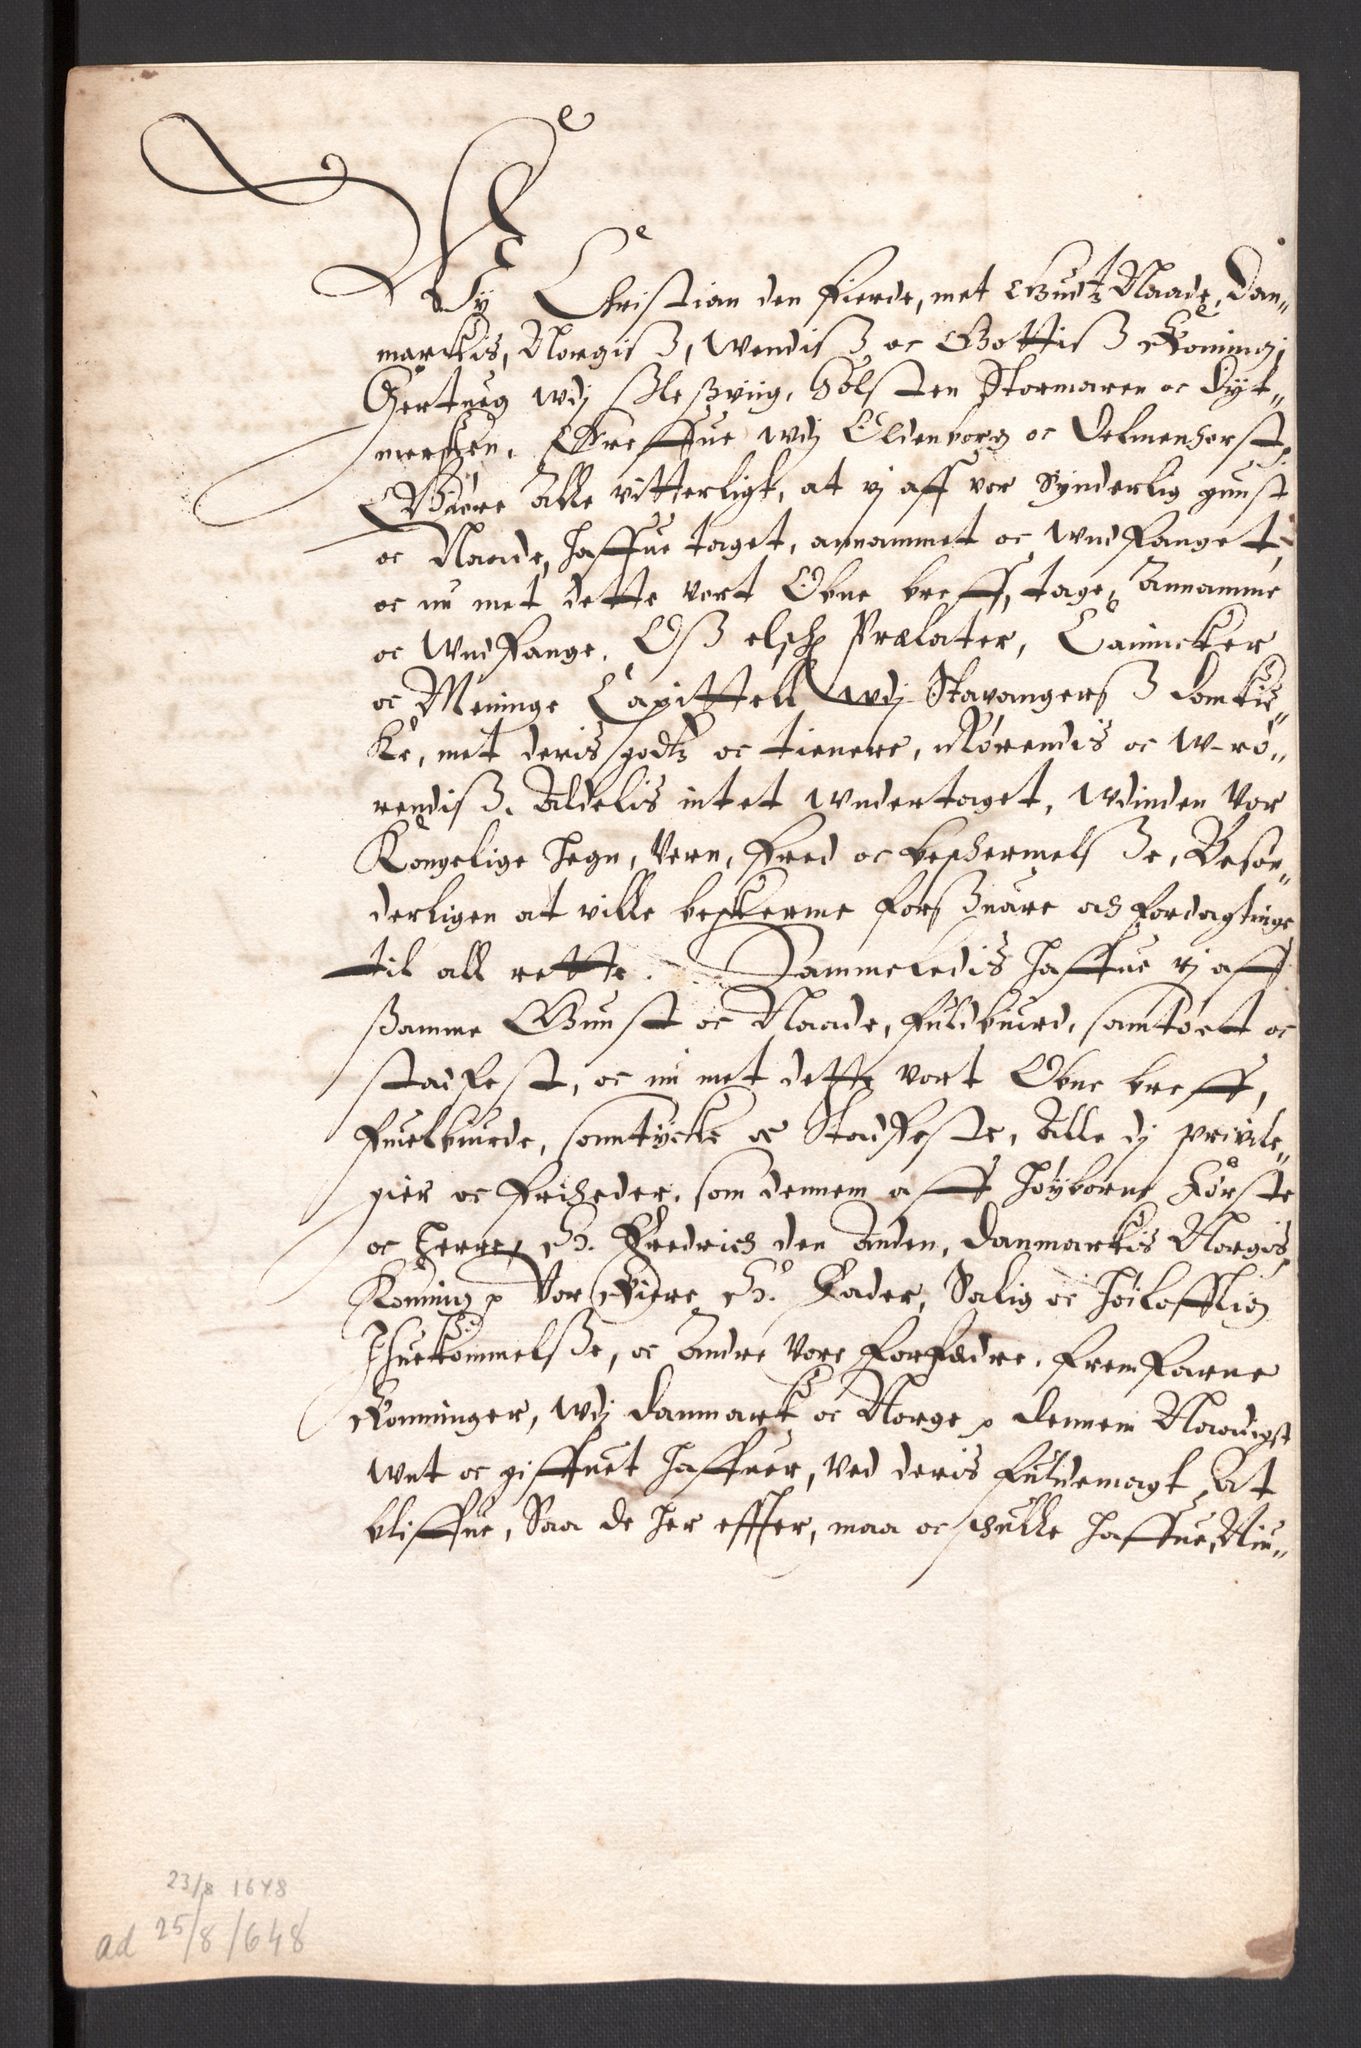 Wy Christian den Fierde, met Gudtz Naade, Dan-
marckis, Norgiß, Wendiß oc Gottis Koning,
Hertueg wdj Sleßviig, Holsten Stormaren oc Dyt-
mersken, Greffue wdj Oldenborg oc Delmenhorst,
Giøre Alle vitterligt, at vj aff vor Synderlig gunst
oc Naade, haffue taget, annammet oc wndfanget,
oc nu met dette vort Obne breff, tage, Annamme
oc wndfange, Oß elsch Prælater, Cannicker
oc Meninge Capittell wdj Stavangerß Domkir-
ke, met deris godtz oc tienere, rørendis oc w-rø-
rendiß, Aldelis intet wndertaget, wdinden Vor
Kongelige hegn, Vern, Fred oc beschermelße, Besøn-
derligen at ville beskerme forßuare och fordagtinge
til all rette. Sammeledis haffue vj aff
ßamme Gunst oc Naade, fuldburd, samtockt oc
stadfest, oc nu met dette vort Obne breff,
fuelburde, samtycke oc Stadfeste, Alle dj privile-
gier oc friheder, som dennem aff høyborne Første
oc Herre, H. Fredrich den Anden, Danmarkis Norgis
Koning p Vor Kiere H. Fader, Salig oc høilofflig
Ihuekommelße, oc Andre Vore Forfædre, fremfarne
Konninger, wdj Danmark oc Norge p dennem Naadigst
wnt oc giffuet haffuer, ved deris fuldemagt At
bliffue, Saa de her effter, maa oc schulle haffue, Niu-
23/8 1648
ad 25/8 1648